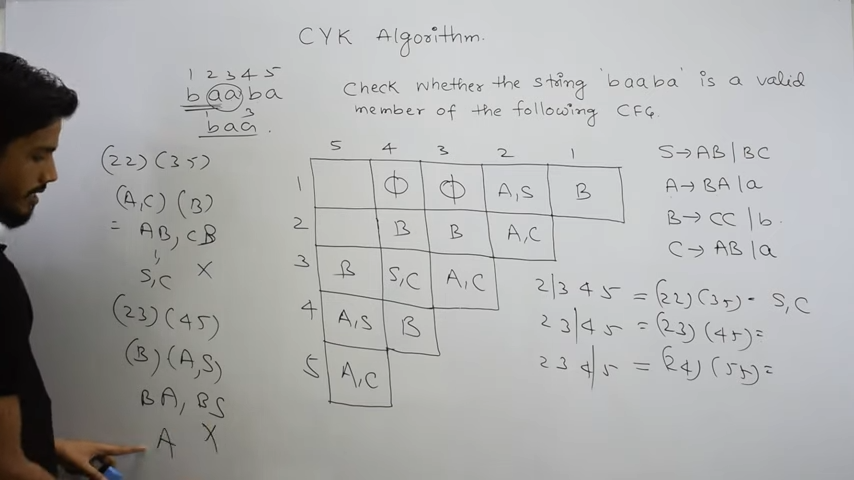 CYK Algorithm.
1 2 3 4 5
b a a b a
1 3
b a a .
Check whether the string 'baaba' is a valid
member of the following CFG.
(22) (35)
(A,C) (B)
= AB, CB
S,C X
(23) (45)
(B) (A,S)
BA, BS
A X
5 4 3 2 1
1 ϕ ϕ A,S B
2 B B A,C
3 B S,C A,C
4 A,S B
5 A,C
S→AB | BC
A→ BA | a
B→ CC | b.
C→ AB | a
2|3 4 5 = (22) (35) - S, C
2 3|4 5 = (23) (45) =
2 3 4|5 = (24) (55) =